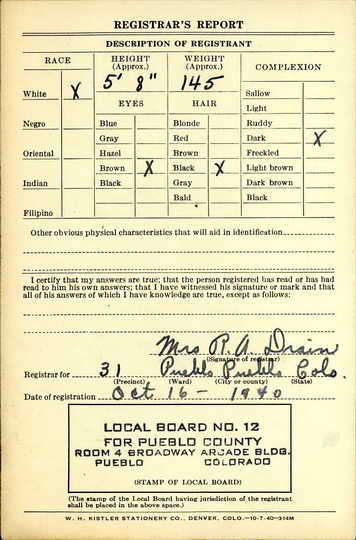 REGISTRAR'S REPORT
DESCRIPTION OF REGISTRANT
RACE
HEIGHT (Approx.)
WEIGHT (Approx.)
COMPLEXION
5' 8"
145
White X
EYES
HAIR
Sallow
Light
Negro
Blue
Blonde
Ruddy
Gray
Red
Dark X
Oriental
Hazel
Brown
Freckled
Brown X
Black X
Light brown
Indian
Black
Gray
Dark brown
Bald
Black
Filipino
Other obvious physical characteristics that will aid in identification
I certify that my answers are true; that the person registered has read or has had
read to him his own answers; that I have witnessed his signature or mark and that
all of his answers of which I have knowledge are true, except as follows:
Mrs R. A. Drain
(Signature of registrar)
Registrar for 31 Pueblo Pueblo Colo.
(Precinct) (Ward) (City or county) (State)
Date of registration Oct 16 - 1940
LOCAL BOARD NO. 12
FOR PUEBLO COUNTY
ROOM 4 BROADWAY ARCADE BLDG.
PUEBLO COLORADO
(STAMP OF LOCAL BOARD)
(The stamp of the Local Board having jurisdiction of the registrant
shall be placed in the above space.)
W. H. KISTLER STATIONERY CO., DENVER, COLO.—10-7-40—314M